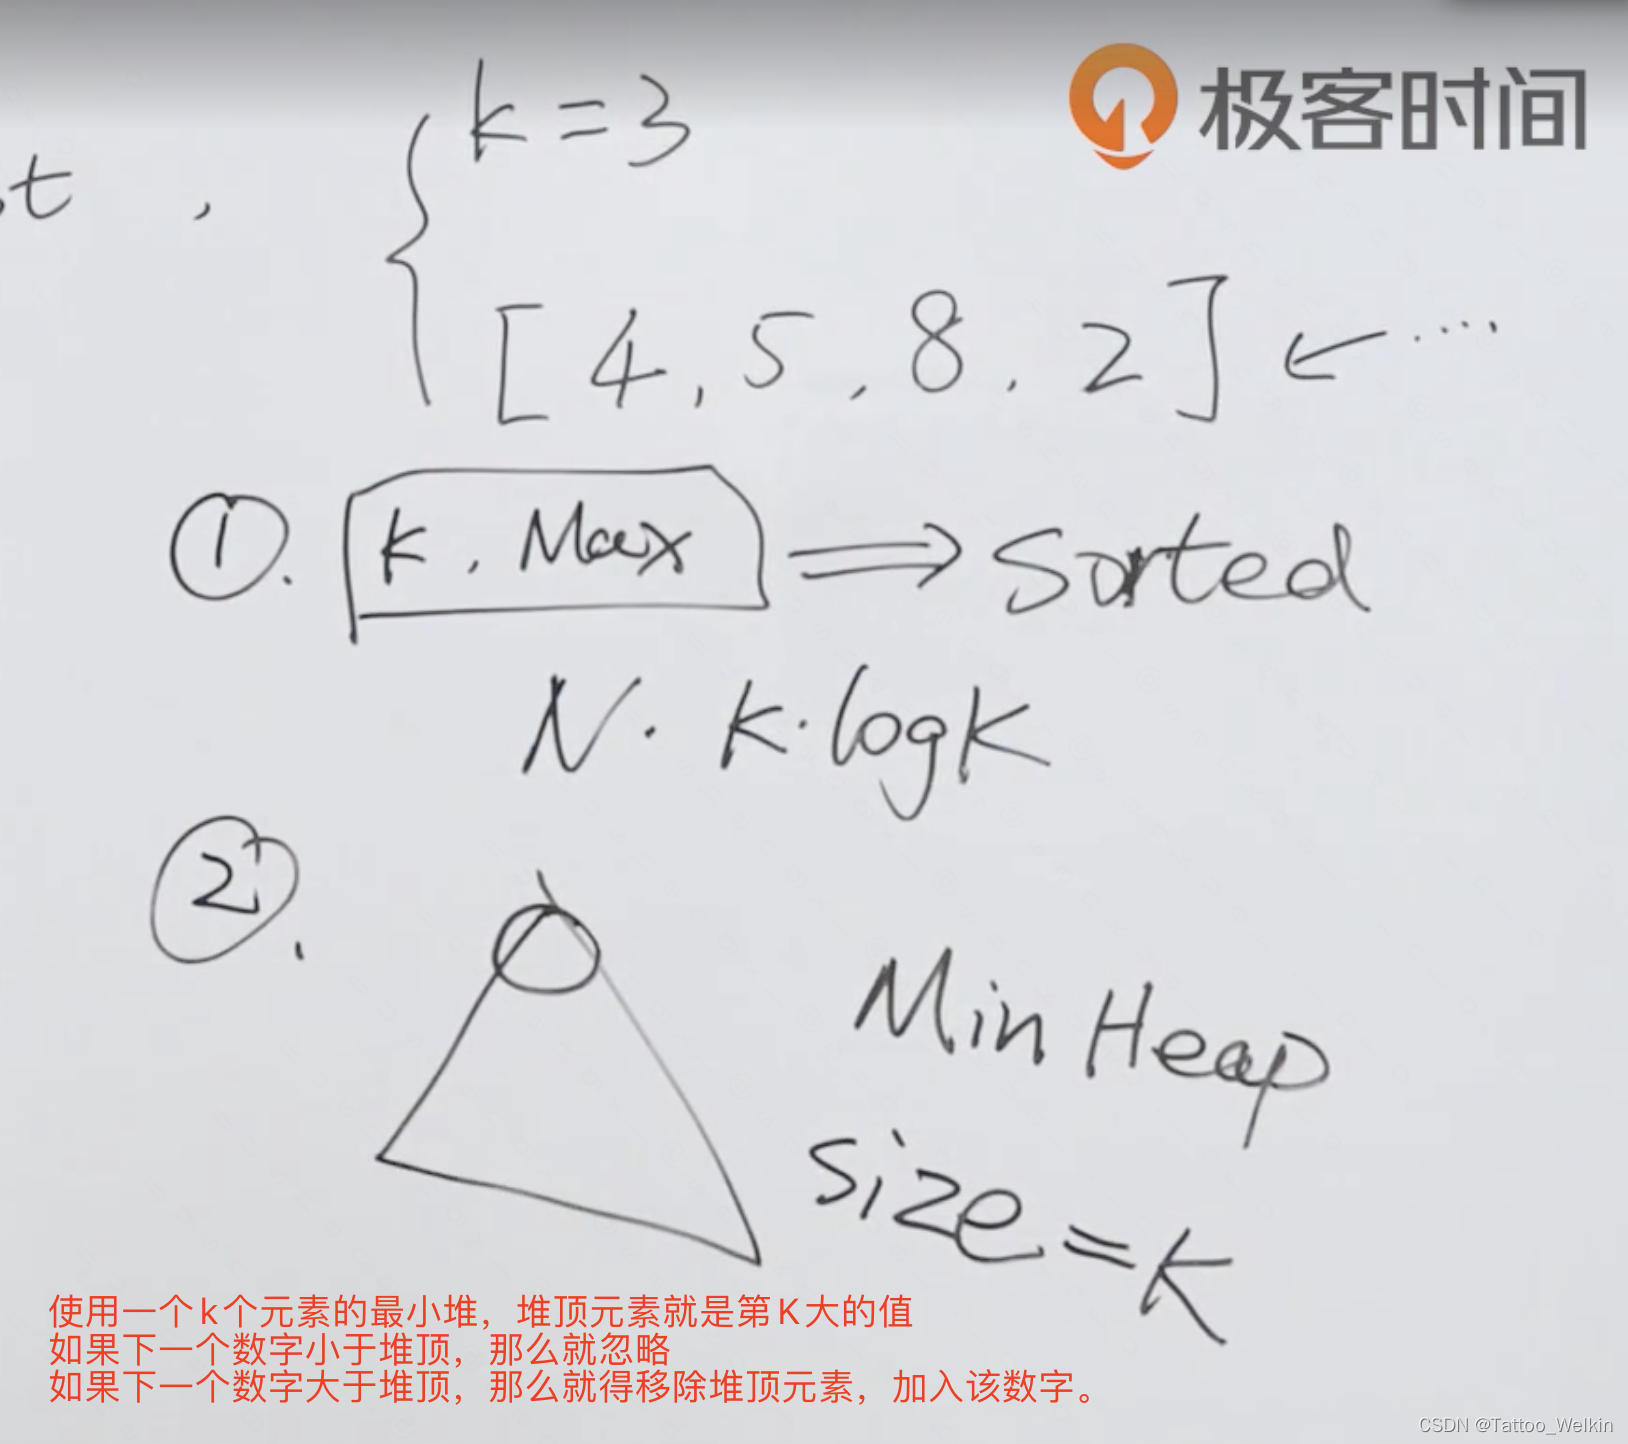 极客时间
k = 3
t ,
[ 4, 5, 8, 2 ] ← ....
①. k, Max ⇒ Sorted
N · k · logk
②.
Min Heap
size = k
使用一个k个元素的最小堆，堆顶元素就是第K大的值
如果下一个数字小于堆顶，那么就忽略
如果下一个数字大于堆顶，那么就得移除堆顶元素，加入该数字。
CSDN @Tattoo_Welkin